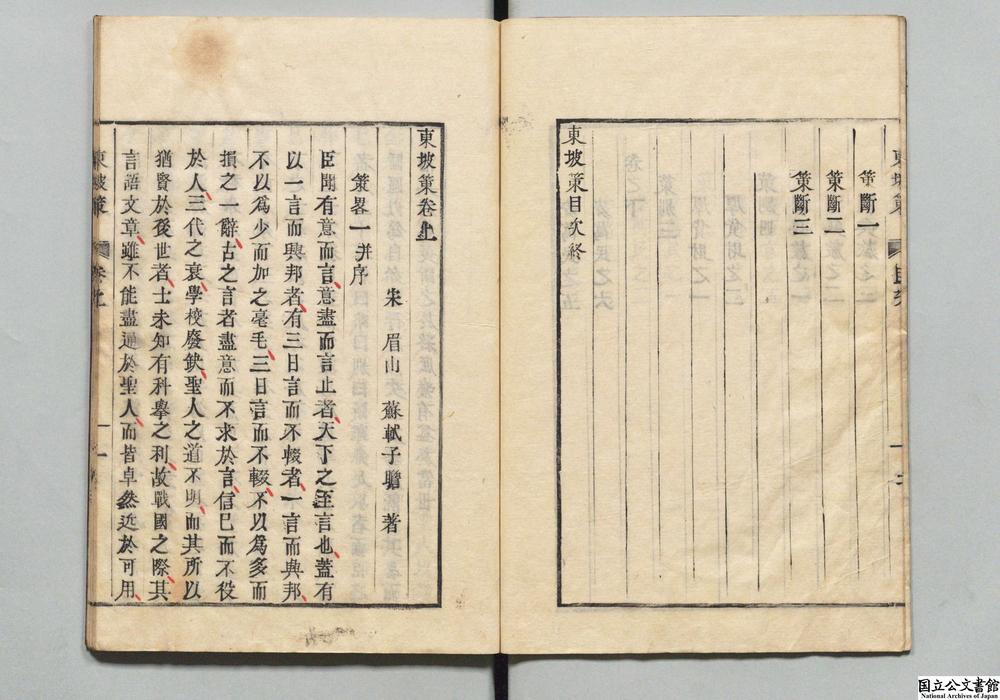 東坡策 目次 二
策斷一
策斷二
策斷三
東坡策目次終
東坡策卷上
宋 眉山 蘇軾子瞻 著
策畧一并序
臣聞有意而言意盡而言止者天下之至言也蓋有
以一言而興邦者有三日言而不輟者一言而興邦
不以爲少而加之毫毛三日言而不輟不以爲多而
損之一辭古之言者盡意而不求於言信巳而不役
於人三代之衰學校廢缺聖人之道不明而其所以
猶賢於後世者士未知有科舉之利故戰國之際其
言語文章雖不能盡通於聖人而皆卓然近於可用
東坡策 卷上 一
国立公文書館
National Archives of Japan